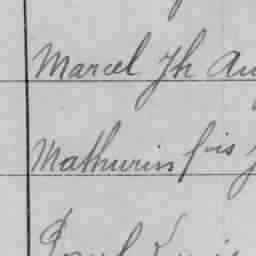 Marcel Jh Au
Mathurin fois J